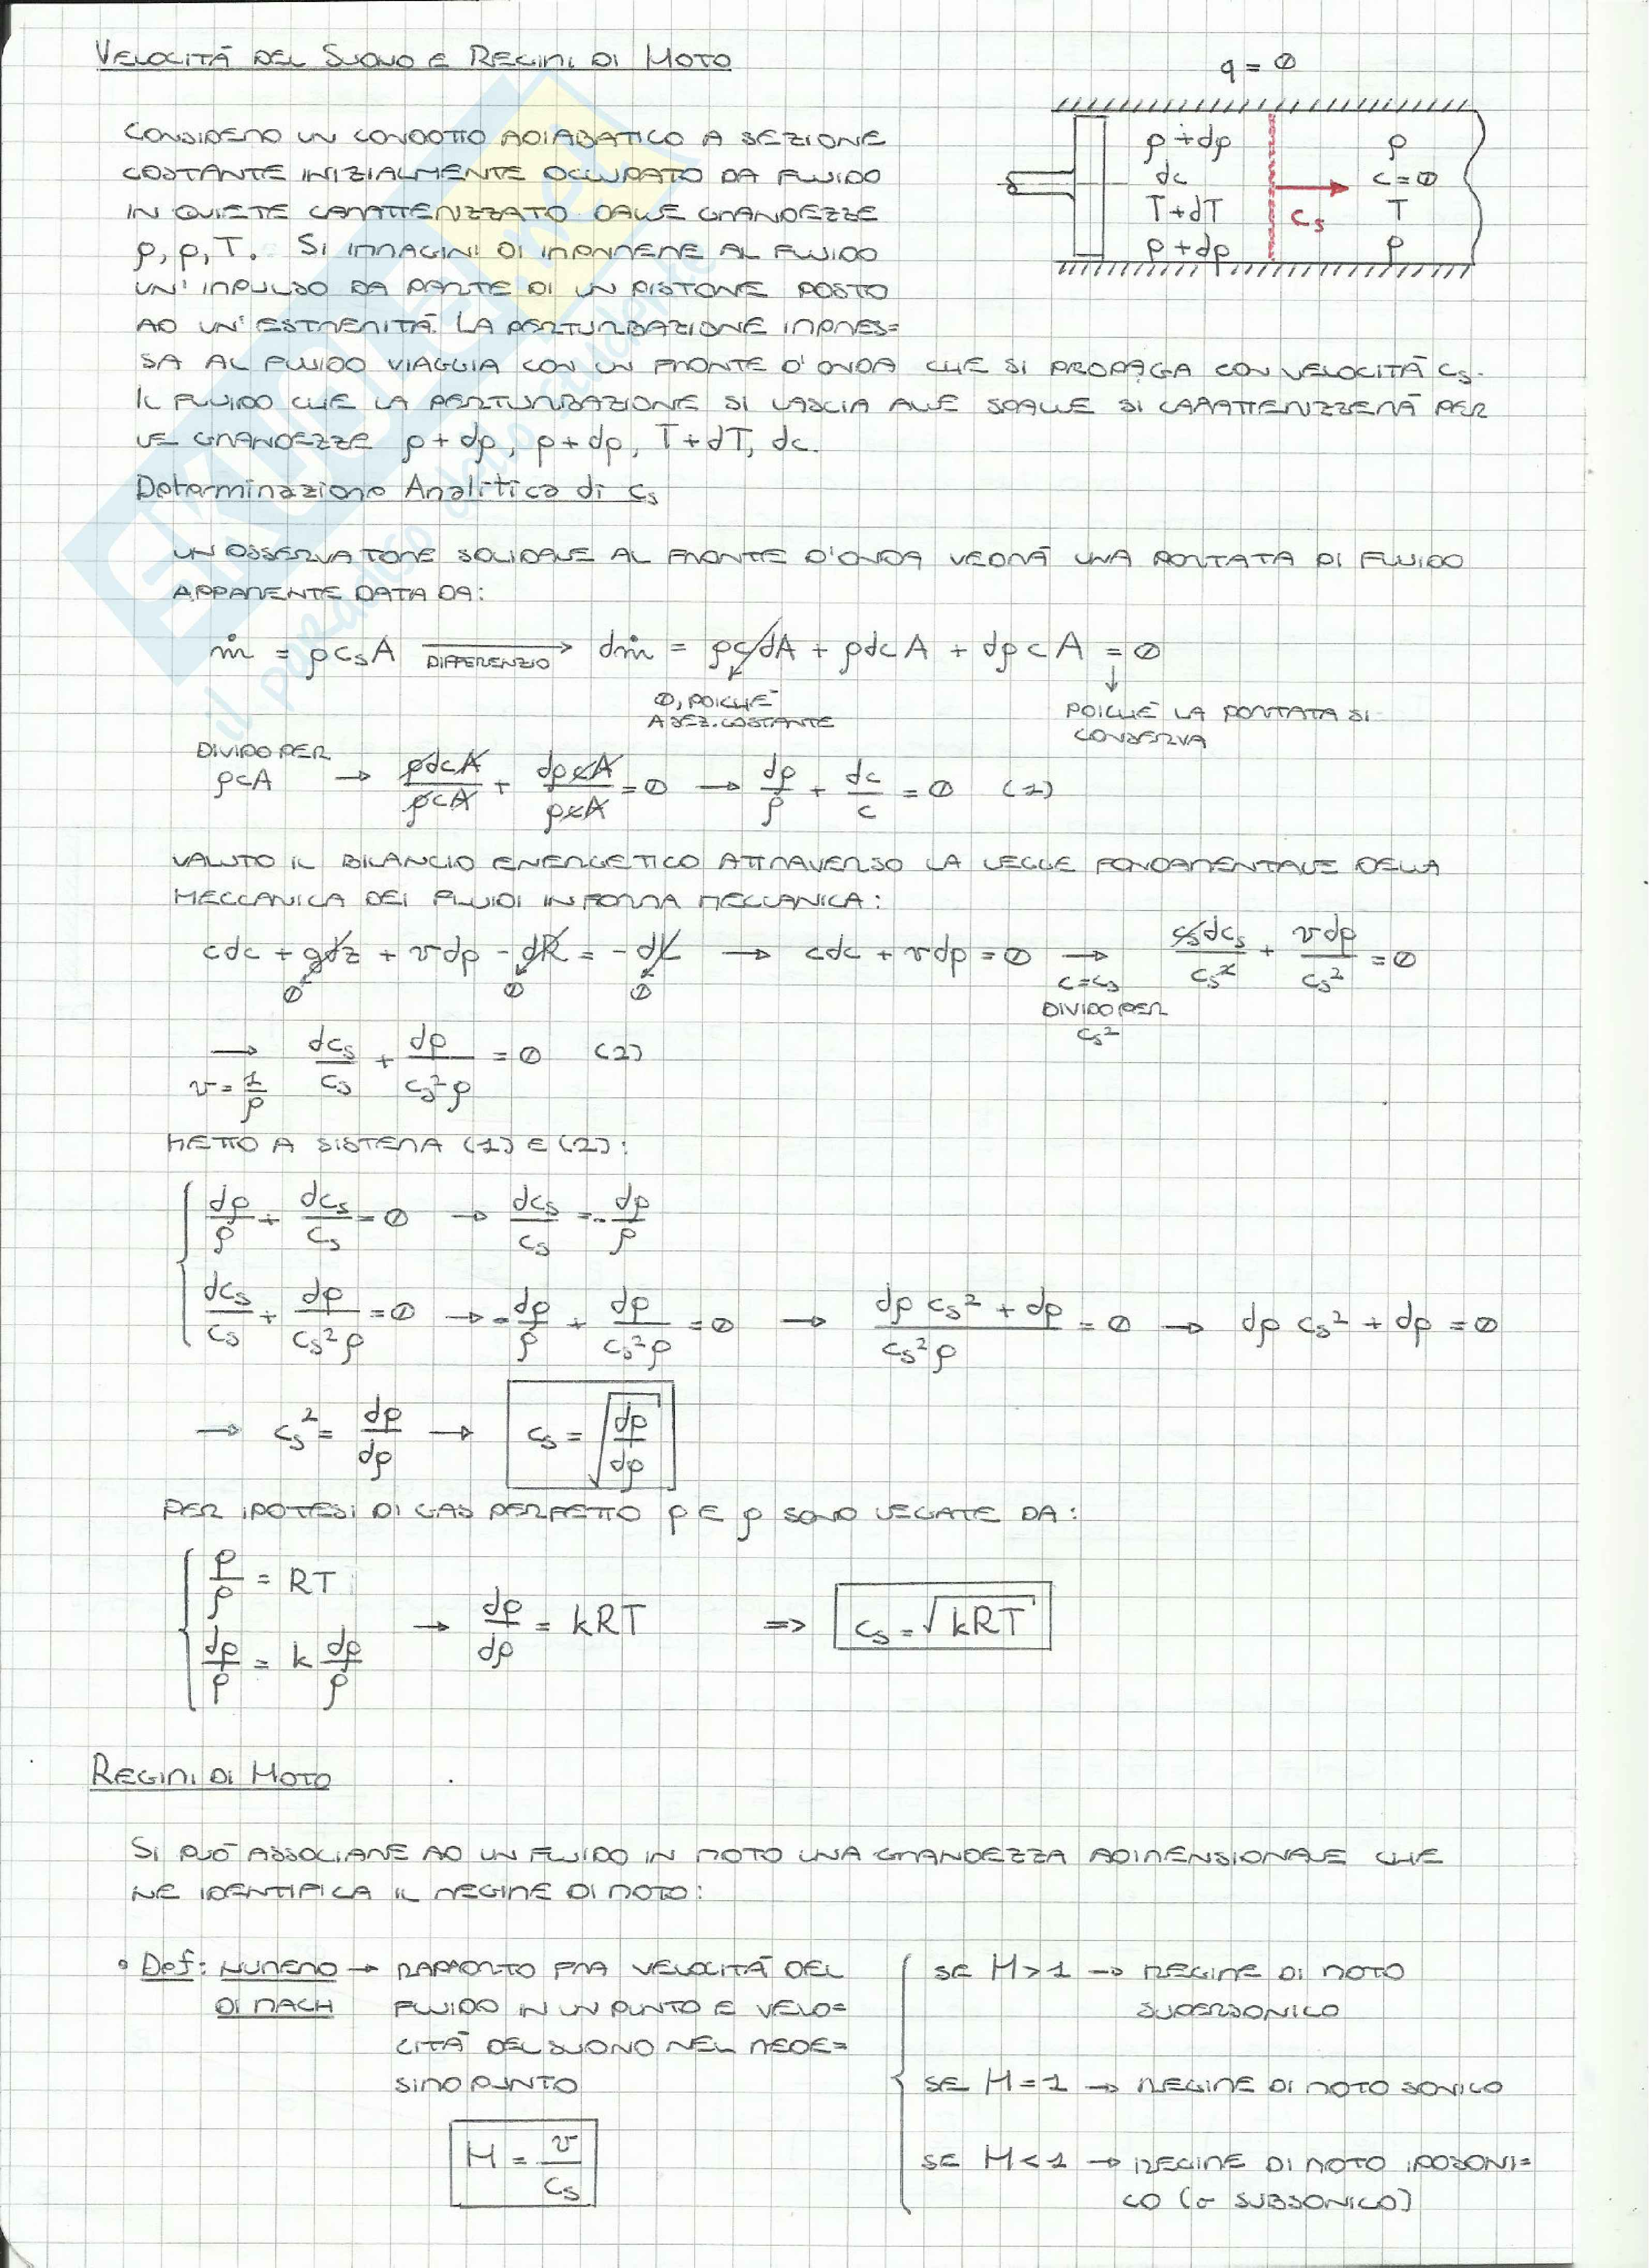 VELOCITÀ DEL SUONO E REGIMI DI MOTO
q = 0
CONSIDERO UN CONDOTTO ADIABATICO A SEZIONE
COSTANTE INIZIALMENTE OCCUPATO DA FLUIDO
IN QUIETE CARATTERIZZATO DALLE GRANDEZZE
p, ρ, T. SI IMMAGINI DI IMPRIMERE AL FLUIDO
UN'IMPULSO DA PARTE DI UN PISTONE POSTO
AD UN'ESTREMITÀ. LA PERTURBAZIONE IMPRES=
SA AL FLUIDO VIAGGIA CON UN FRONTE D'ONDA CHE SI PROPAGA CON VELOCITÀ cs.
IL FLUIDO CHE LA PERTURBAZIONE SI LASCIA ALLE SPALLE SI CARATTERIZZERÀ PER
LE GRANDEZZE p + dp, ρ + dρ, T + dT, dc.
ρ + dρ
dc
T + dT
p + dp
cs
ρ
c = 0
T
p
Determinazione Analitica di cs
UN OSSERVATORE SOLIDALE AL FRONTE D'ONDA VEDRÀ UNA PORTATA DI FLUIDO
APPARENTE DATA DA:
ṁ = ρcsA → DIFFERENZIO dṁ = ρcdA + ρdcA + dρcA = 0
0, POICHÈ
A SEZ. COSTANTE
POICHÈ LA PORTATA SI
CONSERVA
DIVIDO PER
ρcA → ρdcA/ρcA + dρcA/ρcA = 0 → dρ/ρ + dc/c = 0 (1)
VALUTO IL BILANCIO ENERGETICO ATTRAVERSO LA LEGGE FONDAMENTALE DELLA
MECCANICA DEI FLUIDI IN FORMA MECCANICA:
cdc + gdz + vdp - dR = -dL → cdc + vdp = 0 → csdcs/cs² + vdp/cs² = 0
0 0 0
c = cs
DIVIDO PER
cs²
→ v = 1/ρ dcs/cs + dp/cs²ρ = 0 (2)
METTO A SISTEMA (1) E (2):
dρ/ρ + dcs/cs = 0 → dcs/cs = - dρ/ρ
dcs/cs + dp/cs²ρ = 0 → - dρ/ρ + dp/cs²ρ = 0 → dρ cs² + dp/cs²ρ = 0 → dρ cs² + dp = 0
→ cs² = dp/dρ → cs = √dp/dρ
PER IPOTESI DI GAS PERFETTO p E ρ SONO LEGATE DA:
p/ρ = RT
dp/p = k dρ/ρ → dp/dρ = kRT => cs = √kRT
REGIMI DI MOTO
SI PUÒ ASSOCIARE AD UN FLUIDO IN MOTO UNA GRANDEZZA ADIMENSIONALE CHE
NE IDENTIFICA IL REGIME DI MOTO:
• Def: NUMERO DI MACH → RAPPORTO FRA VELOCITÀ DEL
FLUIDO IN UN PUNTO E VELO=
CITÀ DEL SUONO NEL MEDE=
SIMO PUNTO
M = v/cs
SE M > 1 → REGIME DI MOTO
SUPERSONICO
SE M = 1 → REGIME DI MOTO SONICO
SE M < 1 → REGIME DI MOTO IPOSONI=
CO (o SUBSONICO)